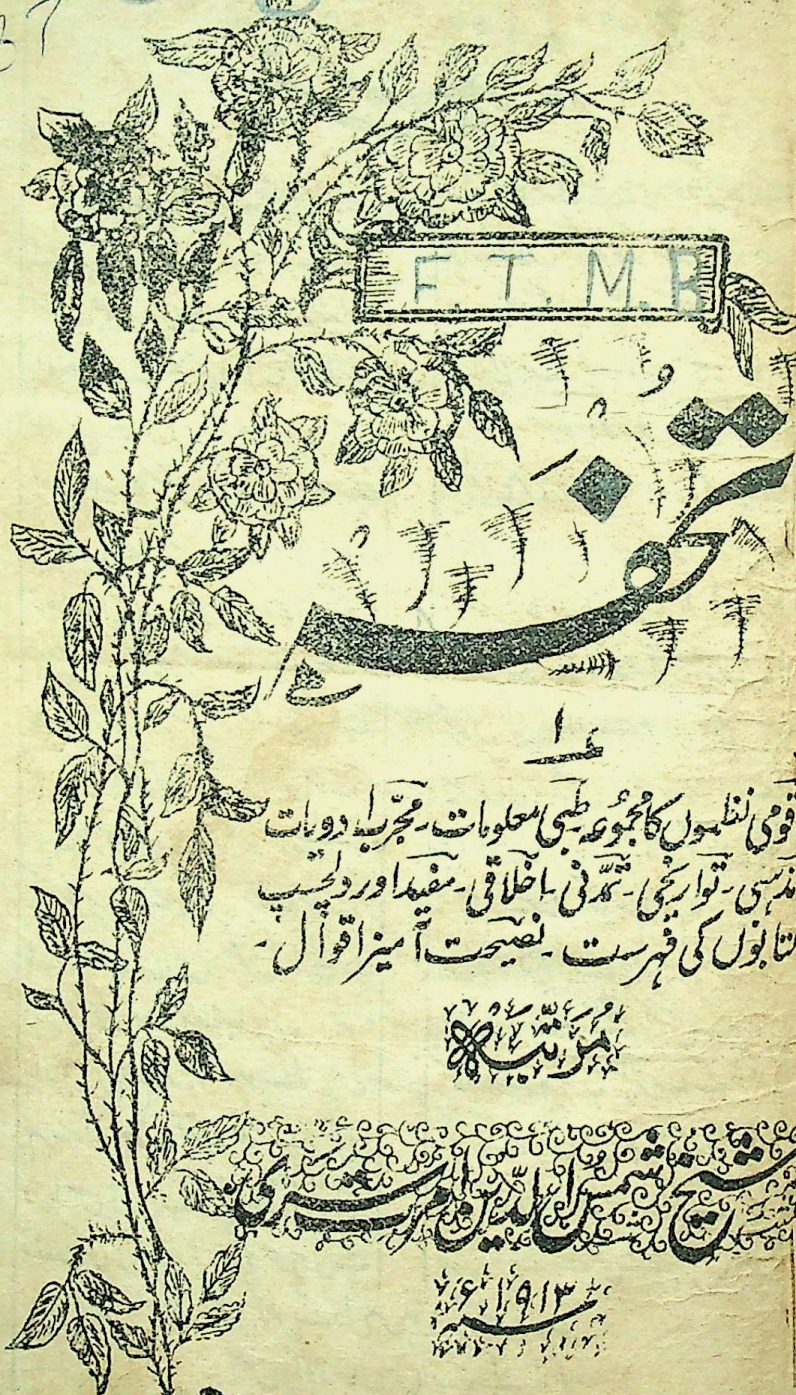 F. T. M. B
تحفہ
۱
قومی نظموں کا مجموعہ۔ طبی معلومات۔ مجرّب ادویات
مذہبی۔ تواریخی۔ تمدّنی۔ اخلاقی۔ مفید اور دلچسپ
کتابوں کی فہرست۔ نصیحت آمیز اقوال۔
مُرتّبہ
شیخ شمس الدّین امرتسری
سنہ ۱۹۱۳ء